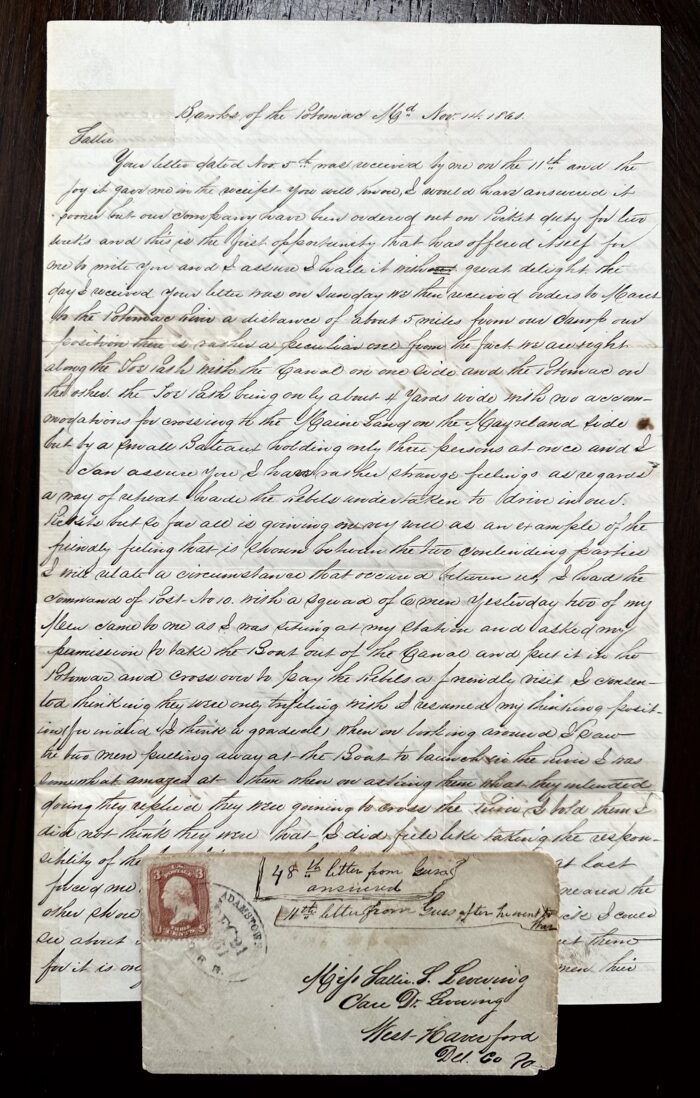 Banks of the Potomac Md Nov. 14. 1861.
Sallie
Your letter dated Nov. 5th was received by me on the 11th and the
joy it gave me in the receipt you will know, I would have answered it
sooner but our company have been ordered out on Picket duty for two
weeks and this is the first opportunity that has offered itself for
me to write you and I assure I haile it with great delight the
day I received your letter was on Sunday we then received orders to March
to the Potomac River a distance of about 5 miles from our Camp our
position there is rather a peculiar one from the fact we are
along the Toe Path with the Canal on one side and the Potomac on
the other the Toe Path being only about 4 yards wide with no accom-
modations for crossing to the Maine Land on the Mayreland side
but by a small Bateaux holding only three persons at once and I
can assure you I have rather strange feelings as regards
a way of retreat had the Rebels undertaken to drive in our
Pickets but so far all is goining on very well as an example of the
friendly feeling that is shown between the two contending parties
I will relate a circumstance that occured between us, I had the
command of Post No 10. with a squad of 6 men Yesterday two of my
Men came to me as I was siting at my station and asked my
permission to take the Boat out of the Canal and put it in the
Potomac and cross over to pay the Rebels a friendly visit I consen-
ted thinking they were only trifeling with I resumed my thinking posit-
ion (for indeed I think a goodeal) when on looking around I saw
the two men pulling away at the Boat to launch in the River I was
somewhat amazed at them when on asking them what they intended
doing they replied they were goining to cross the River I told them I
did not think they were that I did feel like taking the respon-
sibility of the
at last
forced me
neared the
other shore
I could
see about
them
for it is on
men
3 3
U.S. POSTAGE
THREE CENTS
ADAMSTOWN
48th letter from Guss
answered
11th letter from Guss after he went to
War
Miss Sallie S. Levering
Care Dr. Levering
West-Haverford
Del. Co Pa.